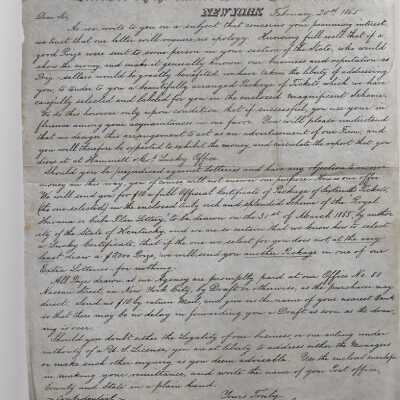 NEW YORK February 20th 1865
Dear Sir,
As we write to you on a subject that concerns your pecuniary interest,
we trust that our letter will require no apology. Knowing full well that if a
good Prize was sent to some person in your section of the State, who would
show the money and make it generally known, our business and reputation as
Prize sellers would be greatly benefited, we have taken the liberty of addressing
you, to tender to you a beautifully arranged Package of Tickets which we have
carefully selected and labeled for you in the enclosed Magnificent Scheme.
We do this however only upon condition that if successful, you use your in-
fluence among your acquaintances in our favor. You will please understand
that we design this arrangement to act as an advertisement of our Firm, and
you will therefore be expected to exhibit the money and circulate the report that you
drew it at Hammett & Co's Lucky Office.
Should you be prejudiced against Lotteries and have any objection to
money in this way, you of course will not answer our purpose.
We will send you for $10 a full Official Certificate of Package of Tickets,
(the one selected) in the enclosed only rich and splendid Scheme of the Royal
Havana or Cuba Plan Lottery, to be drawn on the 31st of March 1865, by author-
ity of the State of Kentucky, and we are so certain that we know how to select
a Lucky Certificate, that if the one we select for you does not at the very
least draw a Prize, we will send you another Package in one of our
Extra Lotteries for nothing.
All Prizes drawn at our Agency are promptly paid at our Office No.
Nassau Street, New York City, by Draft or otherwise, as the purchaser may
direct. Send us $10 by return Mail, and give us the name of your nearest Bank
so that there may be no delay in forwarding you a Draft as soon as the draw-
ing is over.
Should you doubt either the Legality of our business, or our acting under
authority of a U.S. License, you are at liberty to address either the Managers
or make such other enquiries as you deem advisable. Use the enclosed envelope
in making your remittance, and write the name of your Post office,
County and State in a plain hand.
Confidential Yours Truly